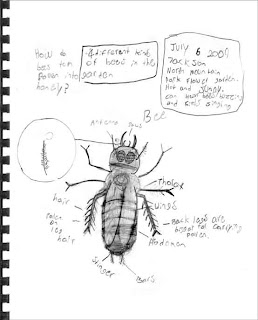 How do
bees turn
Polen into
honey?
4 different kinds
of bees in the
garden
JULY 6 2007
Jackson
North mountain
Park flower garden.
Hot and Sunny.
can hear bees buzzing
and birds singing
Bee
Antenna
Jaws
Thorax
wings
hair
Polen
on
leg
hair
Back legs are
biggest for carrying
polen.
Abdomen
Stinger